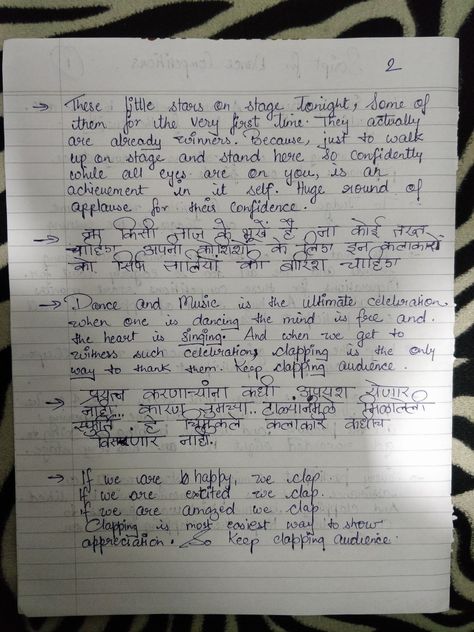 2
→ These little stars on stage tonight, Some of
them for the very first time. They actually
are already winners. Because, just to walk
up on stage and stand here so confidently
while all eyes are on you, is an
achievement in it self. Huge round of
applause for their confidence.
→ ना किसी ताज के भूखे है ना कोई तख्त
चाहिए अपनी कोशिशों के लिए इन कलाकारों
को सिर्फ तालियों की बारिश चाहिए
→ Dance and Music is the ultimate celebration
when one is dancing the mind is free and
the heart is singing. And when we get to
witness such celebrations, clapping is the only
way to thank them. Keep clapping audience.
→ प्रयत्न करणाऱ्यांना कधी अपयश येणार
नाही... कारण तुमच्या टाळ्यांनमुळे मिळालेली
स्फुर्ति हे चिमुकले कलाकार कधीच
विसरणार नाही.
→ If we are happy, we clap.
If we are excited we clap.
if we are amazed we clap
Clapping is most easiest way to show
appreciation. So Keep clapping audience.